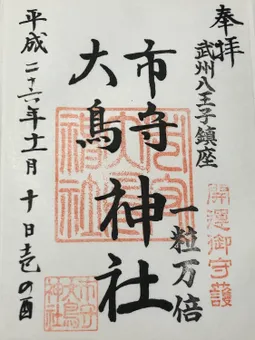 奉拝
武州八王子鎮座
一粒万倍
開運御守護
市守
大鳥
神社
平成二十六年十一月十日壱の酉
市守
大鳥
神社